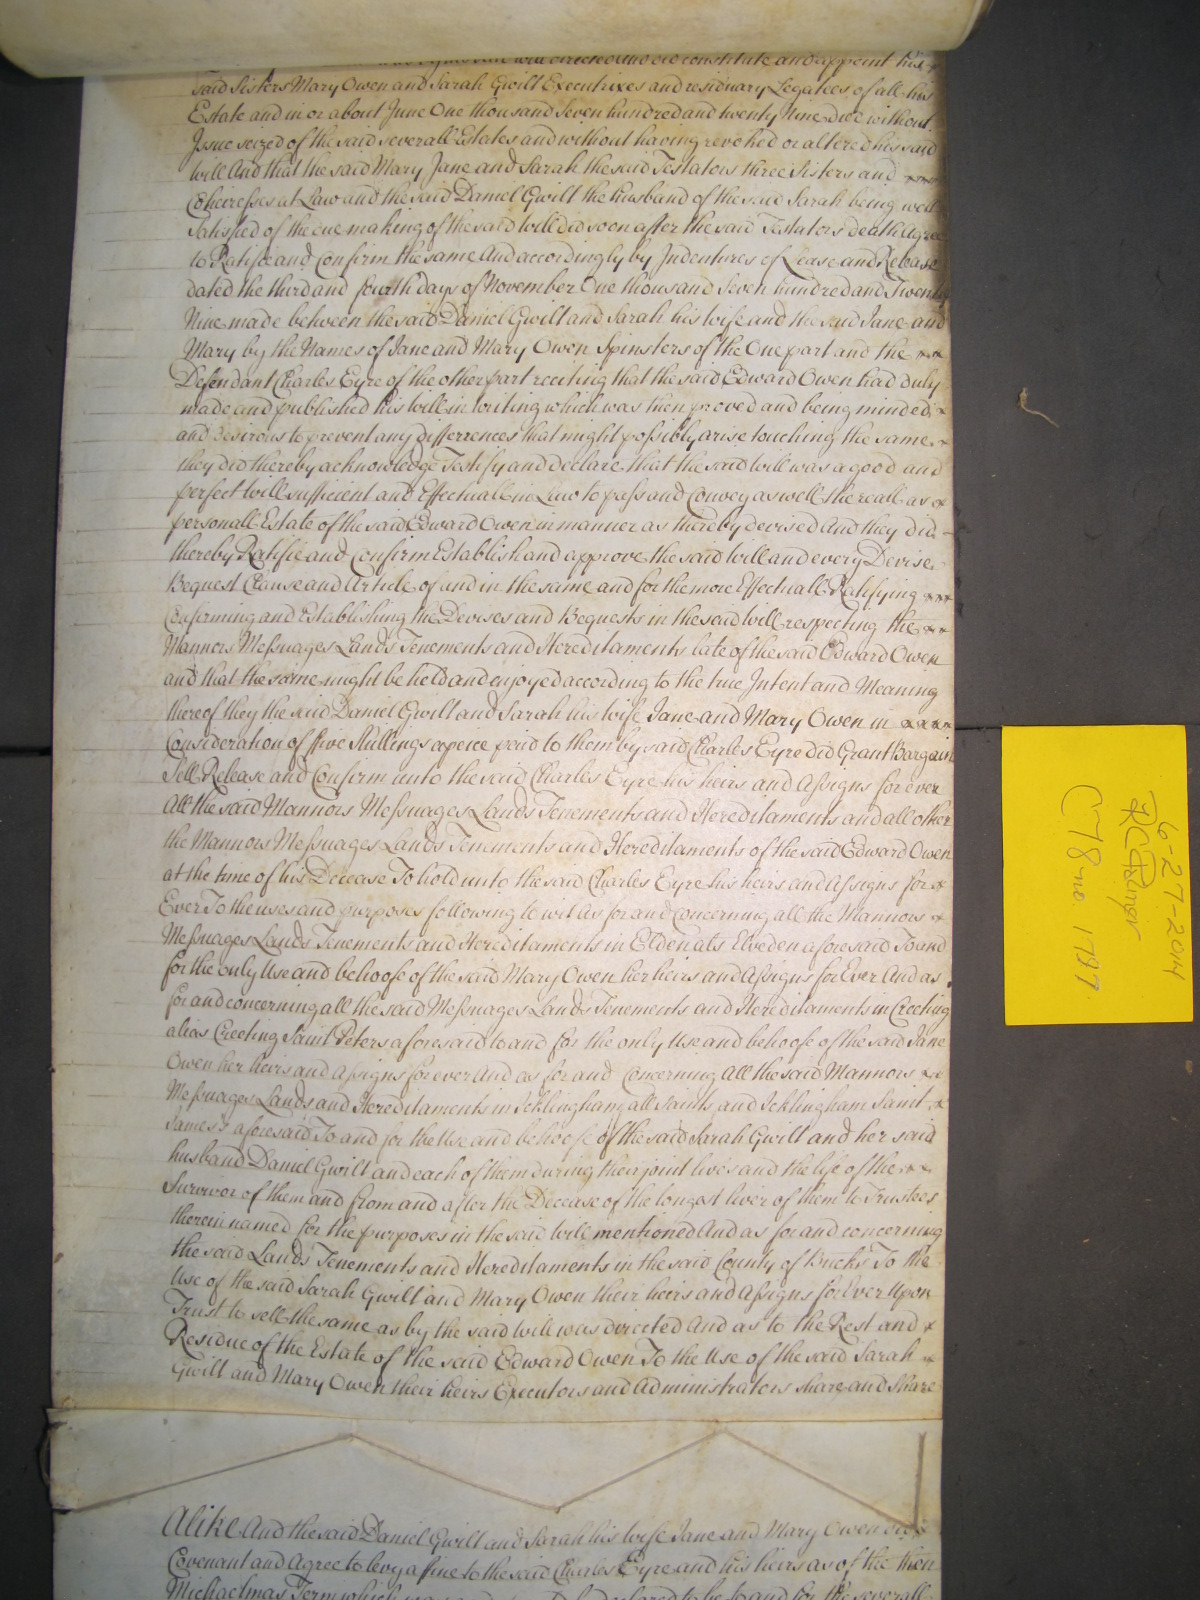 will directed And did constitute and appoint his
said Sisters Mary Owen and Sarah Gwilt Executrixes and residuary Legatees of all his
Estate and in or about June One thousand Seven hundred and twenty Nine died without
Issue seized of the said severall Estates and without having revoked or altered his said
will And that the said Mary Jane and Sarah the said Testators three Sisters and
Coheiresses at Law and the said Daniel Gwilt the husband of the said Sarah being well
Satisfied of the due making of the said will did soon after the said Testators death Agree
to Ratifie and Confirm the same And accordingly by Indentures of Lease and Release
dated the third and fourth days of November One thousand Seven hundred and Twenty
Nine made between the said Daniel Gwilt and Sarah his wife and the said Jane and
Mary by the Names of Jane and Mary Owen Spinsters of the One part and the
Defendant Charles Eyre of the other part reciting that the said Edward Owen had duly
made and published his will in writing which was then proved and being minded
and desirous to prevent any differrences that might possibly arise touching the same
they did thereby acknowledge Testify and declare that the said will was a good and
perfect will sufficient and Effectuall in Law to pass and Convey as well the reall as
personall Estate of the said Edward Owen in manner as thereby devised And they did
thereby Ratifie and Confirm Establish and approve the said will and every Devise
Bequest Clause and Article of and in the same and for the more Effectuall Ratifying
Confirming and Establishing the Devises and Bequests in the said will respecting the
Mannors Messuages Lands Tenements and Hereditaments late of the said Edward Owen
and that the same might be held and enjoyed according to the true Intent and Meaning
thereof they the said Daniel Gwilt and Sarah his wife Jane and Mary Owen in
Consideration of five Shillings apeice paid to them by said Charles Eyre did Grant Bargain
Sell Release and Confirm unto the said Charles Eyre his heirs and Assigns for ever
All the said Mannors Messuages Lands Tenements and Hereditaments and all other
the Mannors Messuages Lands Tenements and Hereditaments of the said Edward Owen
at the time of his Decease To hold unto the said Charles Eyre his heirs and Assigns for
Ever To the uses and purposes following to wit As for and Concerning all the Mannors
Messuages Lands Tenements and Hereditaments in Elden als Elveden aforesaid To and
for the only Use and behoofe of the said Mary Owen her heirs and Assigns for Ever And as
for and concerning all the said Messuages Lands Tenements and Hereditaments in Creeting
alias Creeting Saint Peters aforesaid to and for the only Use and behoofe of the said Jane
Owen her heirs and Assigns for ever And as for and Concerning All the said Mannors
Messuages Lands and Hereditaments in Icklingham all Saints and Icklingham Saint
James's aforesaid To and for the Use and behoofe of the said Sarah Gwilt and her said
husband Daniel Gwilt and each of them during their joint lives and the life of the
Survivor of them and from and after the Decease of the longest liver of them to Trustees
therein named for the purposes in the said will mentioned And as for and concerning
the said Lands Tenements and Hereditaments in the said County of Bucks To the
Use of the said Sarah Gwilt and Mary Owen their heirs and Assigns for Ever Upon
Trust to sell the same as by the said will was directed And as to the Rest and
Residue of the Estate of the said Edward Owen To the Use of the said Sarah
Gwilt and Mary Owen their heirs Executors and Administrators share and share
Alike And the said Daniel Gwilt and Sarah his wife Jane and Mary Owen did
Covenant and Agree to levy a fine to the said Charles Eyre and his heirs as of the then
Michaelmas Term which
6-27-2014
C78 no 1797